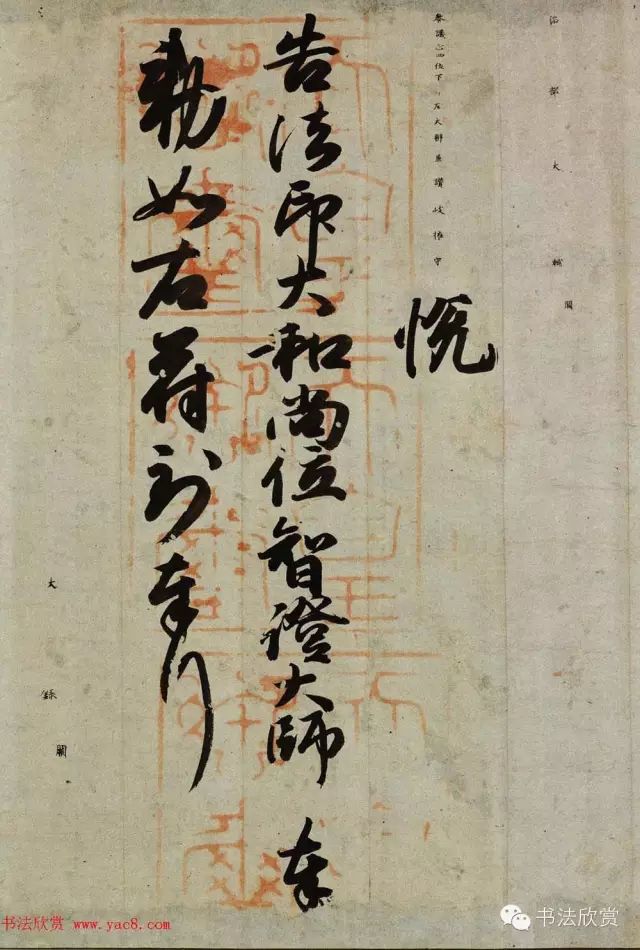 治部大輔闕
參議正四位下行左大辨兼讚岐權守
悦
告法印大和尚位智證大師 奉
勅如右符到奉行
大錄闕
书法欣赏 www.yac8.com
书法欣赏